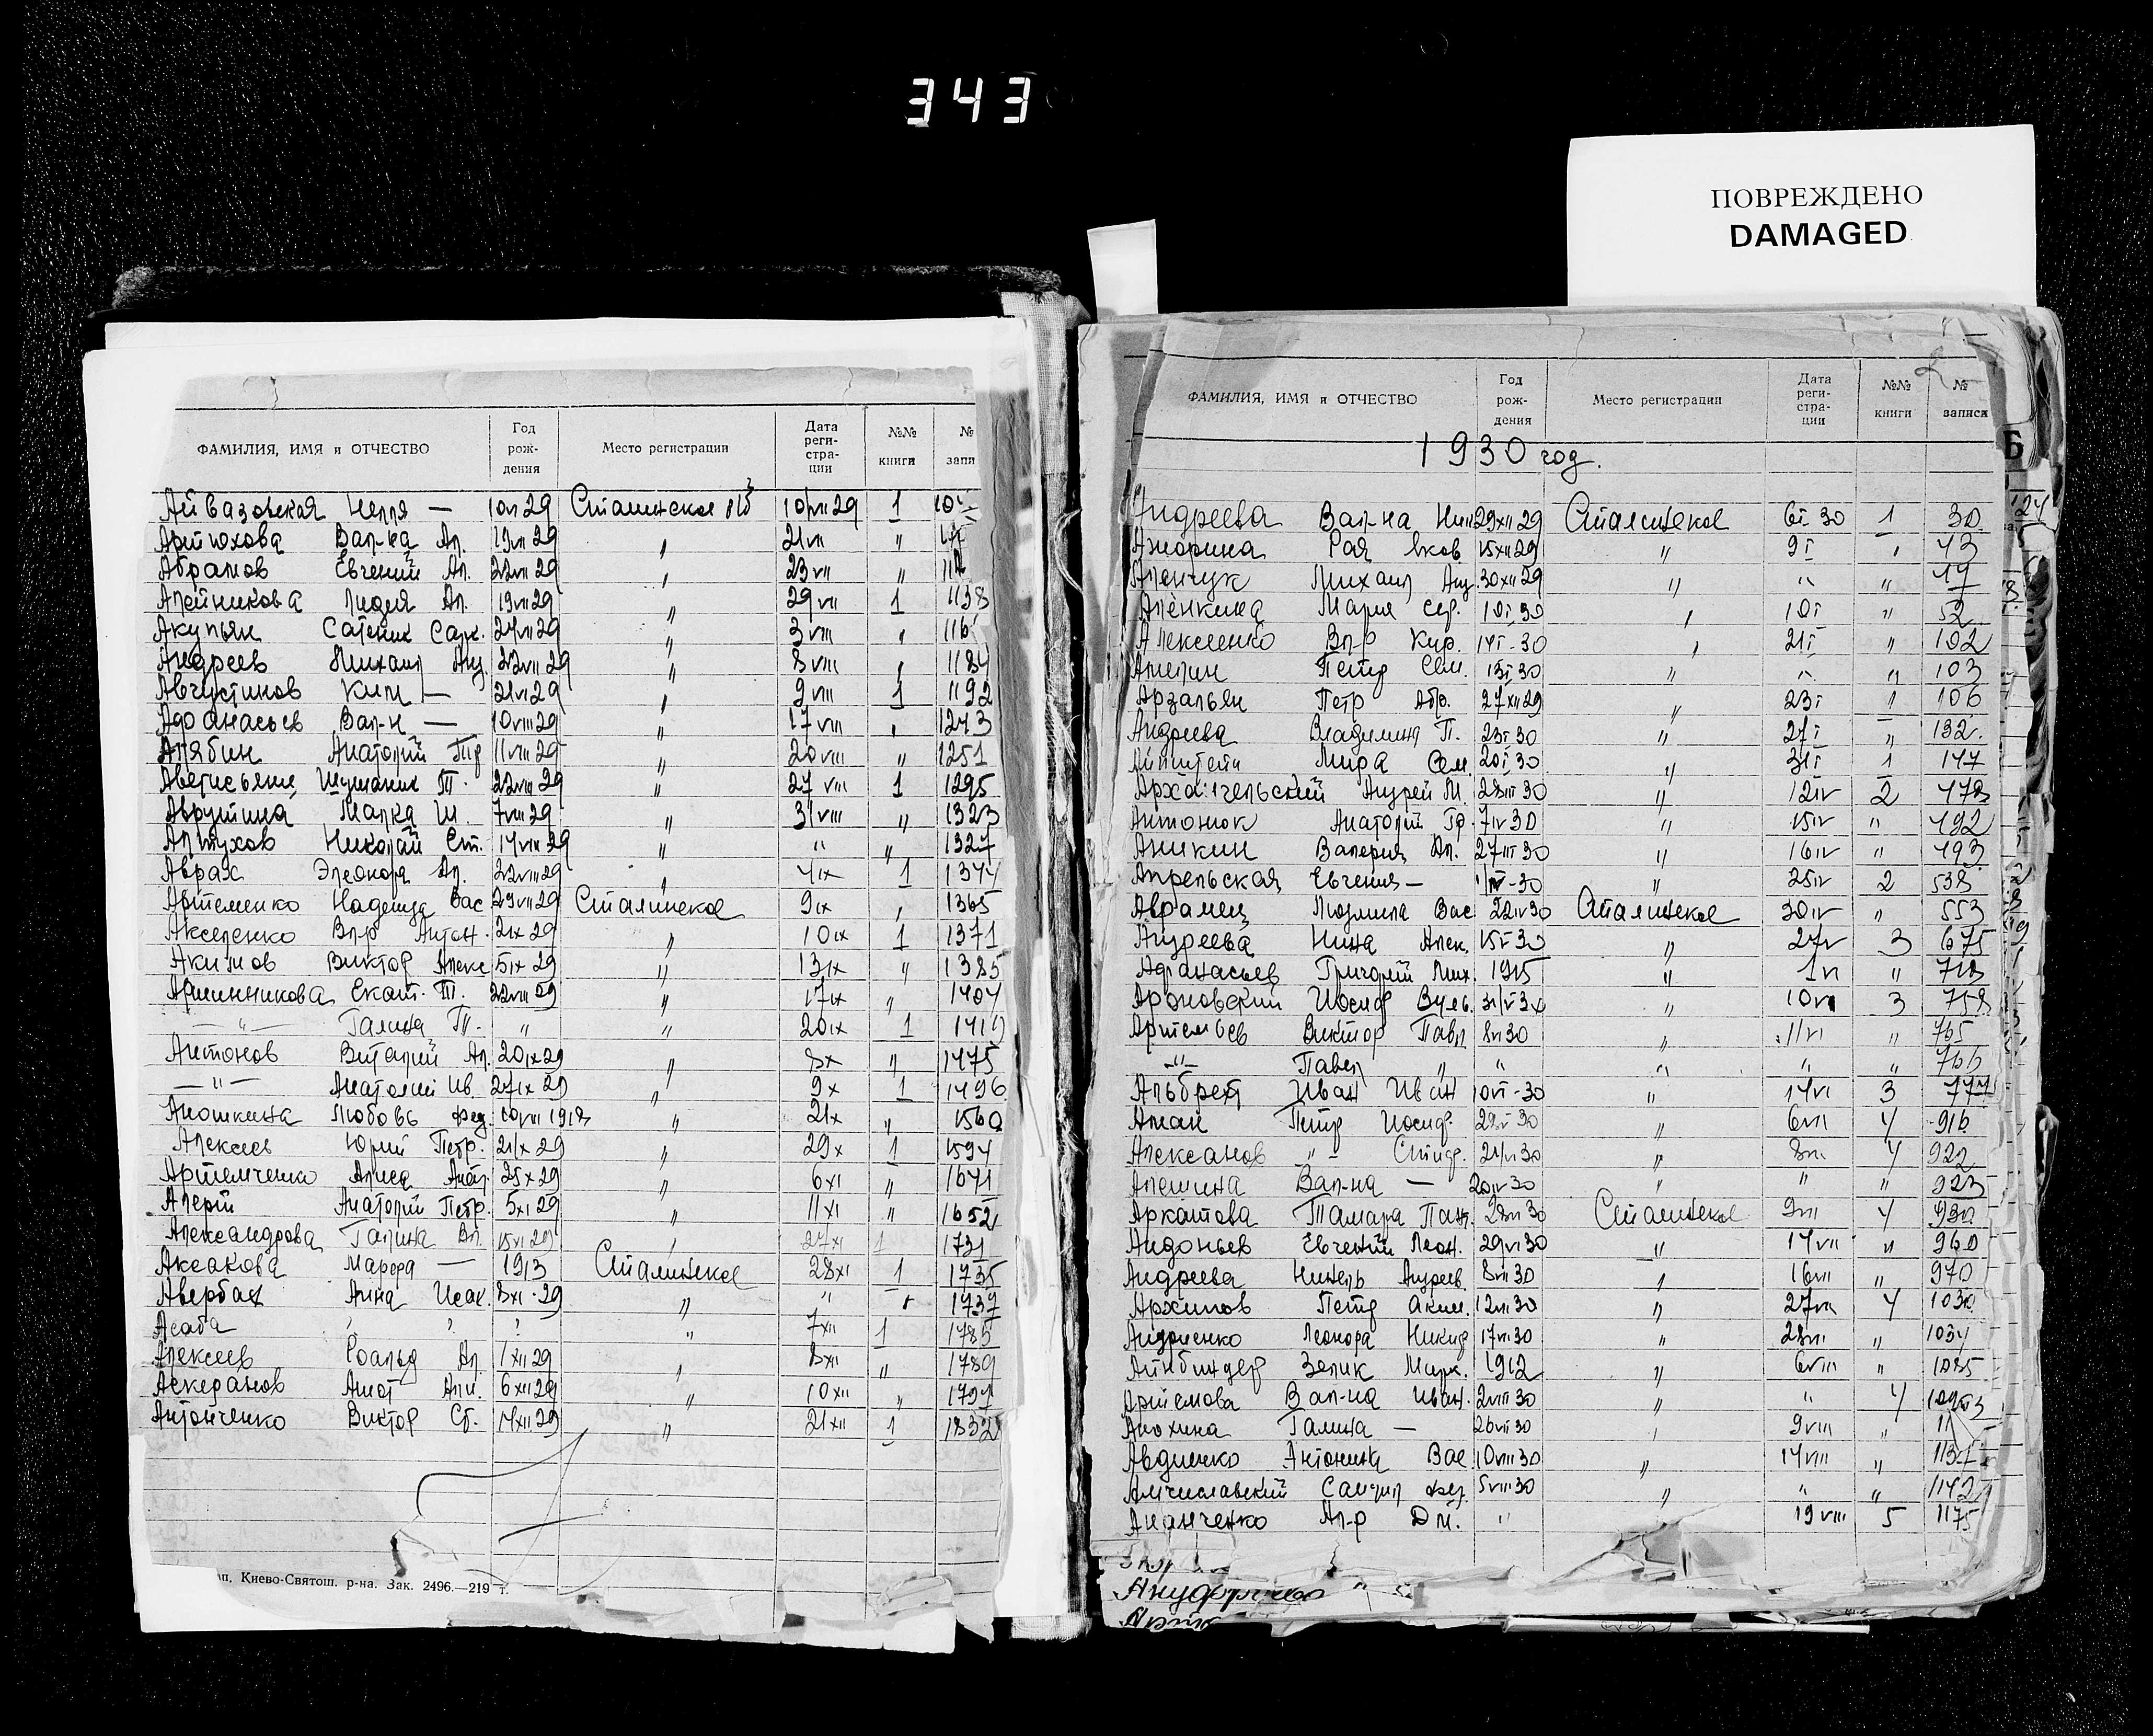 343
ПОВРЕЖДЕНО
DAMAGED
ФАМИЛИЯ, ИМЯ и ОТЧЕСТВО Год рождения Место регистрации Дата регистрации №№ книги № запи
Айвазовская Нелля — 10VI 29 Сталинское 10VII 29 1
Артюхова Вал-на Ал. 19VI 29 " 21VII "
Абрамов Евгений Ал. 22VII 29 " 23VII "
Алейникова Лидия Ал. 19VII 29 " 29VII 1 1138
Акупьян Сатеник Сарк. 24VII 29 " 3VIII " 116
Андреев Михаил Анд. 22VII 29 " 8VIII " 1184
Августинов Ким — 21VI 29 " 9VIII 1 1192
Афанасьев Вал-н — 10VIII 29 " 17VIII " 1243
Алябин Анатолий 11VIII 29 " 20VIII " 1251
Аветисьянц Шушаник Т. 22VIII 29 " 27VIII 1 1295
Аврутина Малка Ш. 7VIII 29 " 31VIII " 1323
Алтухов Николай Ст. 14VIII 29 " " " 1327
Аврах Элеонора Ал. 22VIII 29 " 4IX 1 1344
Артеменко Надежда Вас 29VII 29 Сталинское 9IX " 1365
Акселенко Вл-р Антон. 2IX 29 " 10IX 1 1371
Акимов Виктор Алекс 5IX 29 " 13IX " 1385
Аршинникова Екат. Т. 22VIII 29 " 17IX " 1404
— " — Галина Т. " " 20IX 1
Антонов Виталий Ал. 20IX 29 " 8X " 1475
— " — Анатолий Ив. 27IX 29 " 9X 1 1496
Аношкина Любовь Фед. 10VII 1918 " 21X " 1560
Алексеев Юрий Петр. 21X 29 " 29X 1 1594
Артемченко Алиса Анат. 25X 29 " 6XI " 1641
Аперт Анатолий Петр. 5XI 29 " 11XI " 1652
Александрова Галина Вл. 15XI 29 " 27XI 1 1731
Аксакова Марфа — 1913 Сталинское 28XI 1 1735
Авербах Анна Исак. 8XI-29 " " " 1737
Асаба ? ? ? " 7XII 1 1785
Алексеев Роальд Ал 1XII 29 " 8XII " 1789
Аскеранов Ашот Али. 6XII 29 " 10XII " 1797
Антонченко Виктор Ст. 14XII 29 " 21XII 1 1832
п. Киево-Святош. р-на. Зак. 2496.—219 т.
ФАМИЛИЯ, ИМЯ и ОТЧЕСТВО Год рождения Место регистрации Дата регистрации №№ книги № записи
1930 год.
Андреева Вал-на Ник 29XII 29 Сталинское 6I 30 1 30
Рая Яков 15XII 29 " 9I " 43
Аленчук Михаил Анд. 30XII 29 " " "
Алёнкина Мария Сер. 10I 30 " 10I " 52
Алексеенко Вл-р Кир. 14I-30 " 21I " 102
Анепин Петр Сем. 13I 30 " " " 103
Арзальян Петр Абр. 27XII 29 " 23I 1 106
Андреева Владилина П. 23I 30 " 27I " 132
Айпштейн Мира Сем. 20I 30 " 31I 1 147
Архангельский Андрей М. 28III 30 " 12IV 2 478
Антонюк Анатолий Гр. 7IV 30 " 15IV " 492
Аникин Валерий Ал. 27III 30 " 16IV " 493
Апрельская Евгения — IV-30 " 25IV 2 538
Аврамец Людмила Вас 22IV 30 Сталинское 30IV " 553
Андреева Нина Алек. 15V 30 " 27V 3 675
Афанасьев Григорий Мих. 1915 " 1VI " 713
Ароновский Иосиф Вуль. 31V 30 " 10VI 3 758
Артемьев Виктор Павл. 8VI 30 " 11VI " 765
— " — Павел " " " " " 766
Альбрет Иван Иван 10VI-30 " 14VI 3
Аман Петр Иосиф. 29VI 30 " 6VII 4 916
Алексанов " — Стиф. 21VI 30 " 8VII 4 922
Алешина Вал-на — 20IV 30 " " " 923
Аркатова Тамара Пант. 28VI 30 Сталинское 9VII 4 930
Андоньев Евгений Леон. 29VI 30 " 14VII " 960
Андреева Нинель Андреев. 8VII 30 " 16VII " 970
Архипов Петр Аким. 12VII 30 " 27VII 4 1030
Андриенко Леонора Никиф 17VII 30 " 28VII " 1034
Айнбиндер Зелик Марк. 1912 " 6VIII " 1085
Артемова Вал-на Иван. 2VIII 30 " " 4
Анохина Галина — 26VII 30 " 9VIII "
Авдиенко Антонина Вас 10VIII 30 " 14VIII " 1135
Амчиславский Самуил Фед. 5VIII 30 " " " 1142
Ананченко Ал-р Дм. " 19VIII 5 1175